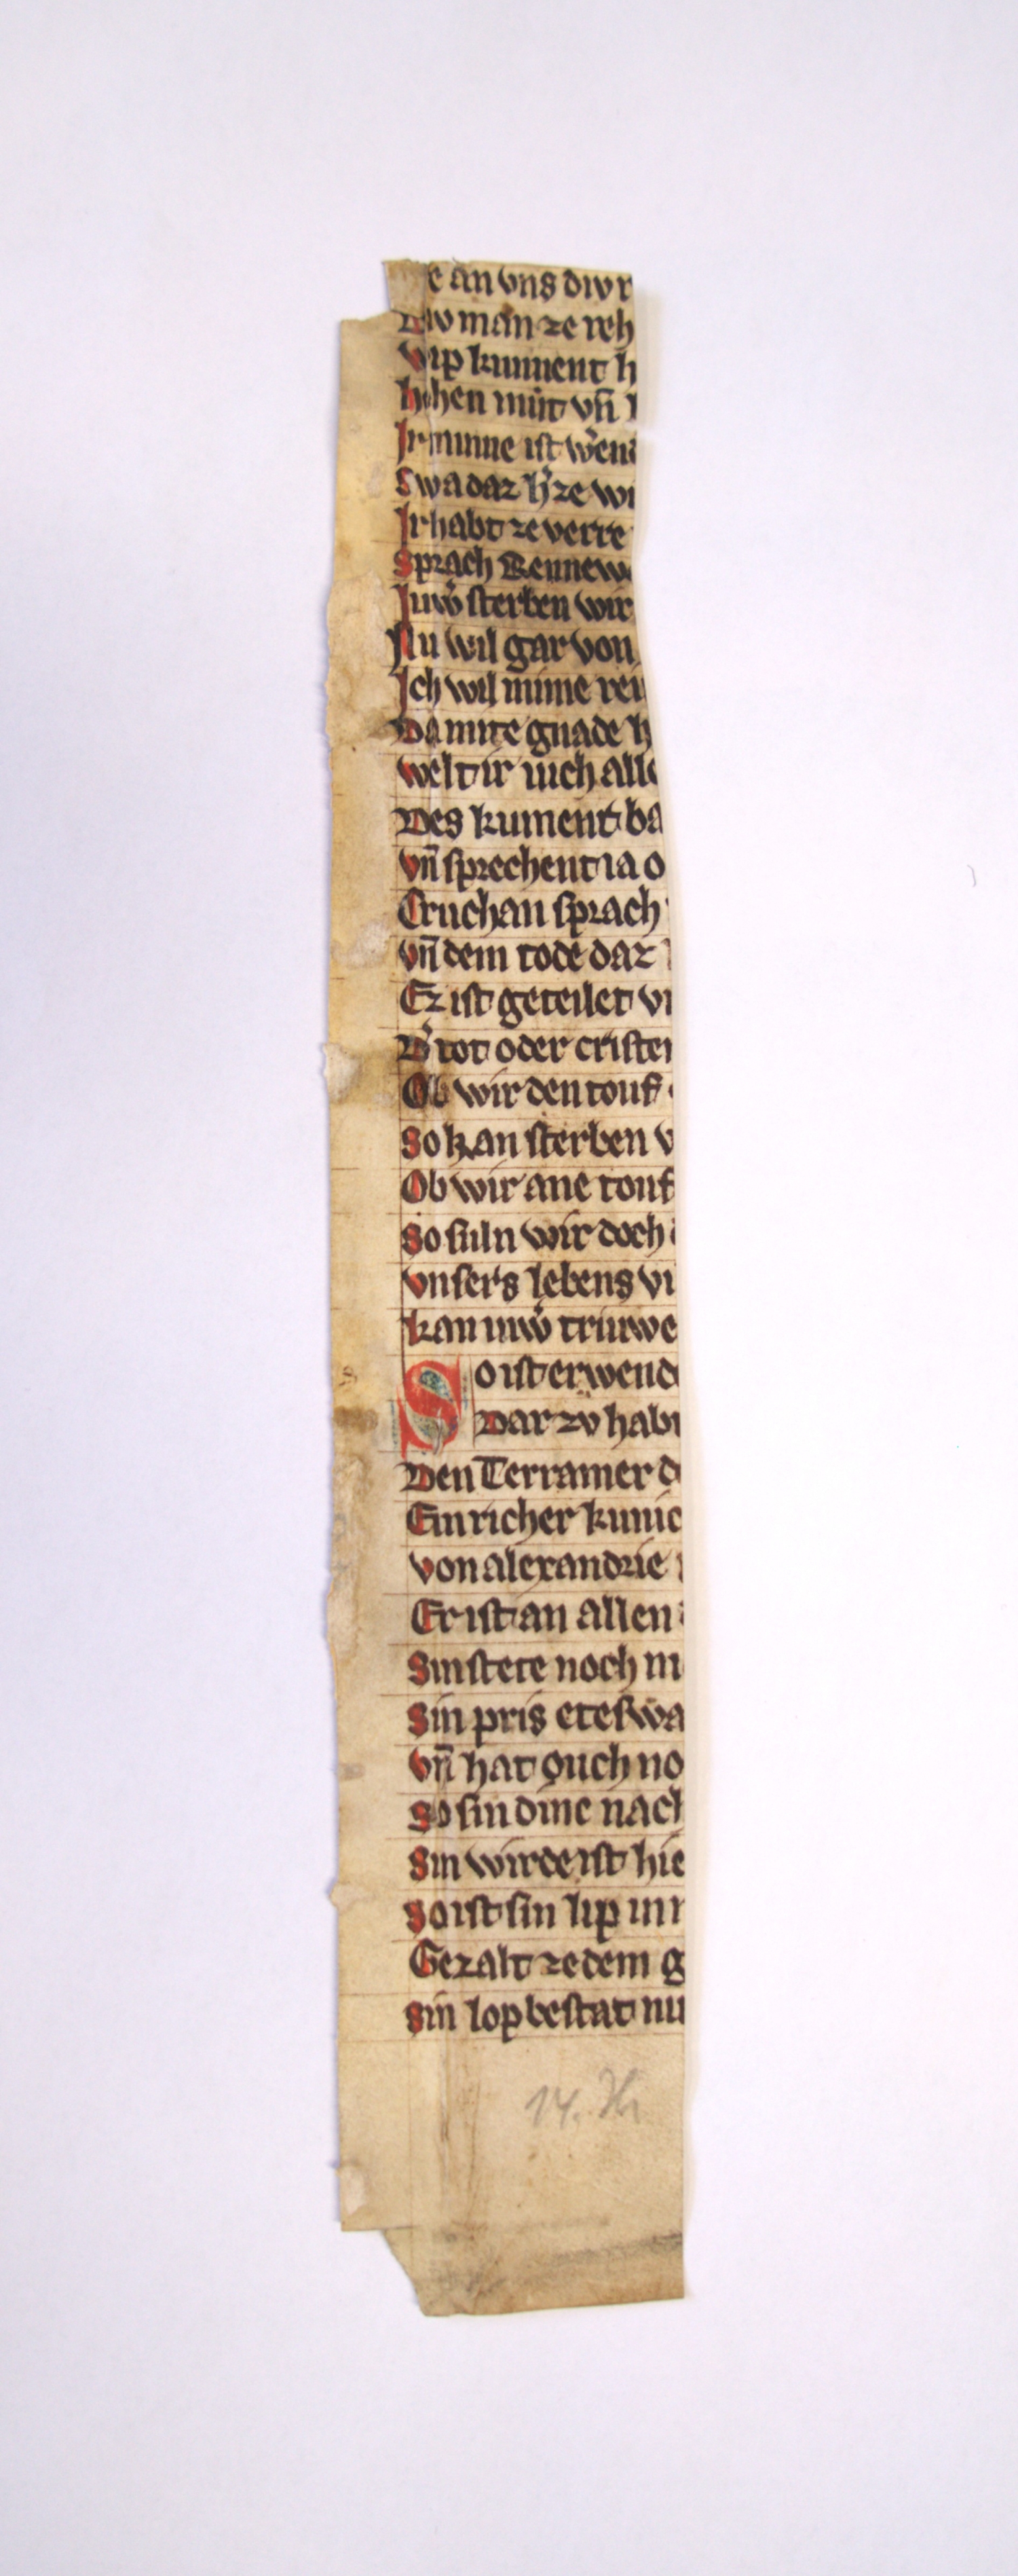 e an vns diu r
Div man ze reh
wip kument h
hohen mut vn̄ l
Ir minne ist wend
Swa daz h'ze wi
Ir habt ze verre
Sprach Rennewa
Iuw' sterben wir
Nu wil gar von
Ich wil mime rei
Da mite gnade h
welt ir iuch alle
Des kument ba
vn̄ sprechent ia o
Cruchan sprach
vn̄ dem tode daz
Ez ist geteilet vn
D' tot oder cristen
Ob wir den touf
So kan sterben v
Ob wir ane touf
So suln wir doch
vnsers lebens vn
kan iuw' triuwe
So ist erwende
Dar zv habt
Den Terramer de
Ein richer kunic
von alexandrie
Er ist an allen
Sin stete noch ni
Sin pris eteswa
vn̄ hat ouch no
So sin dine nach
Sin wirde ist hie
So ist sin lip in r
Gezalt ze dem g
Sin lop bestat nu
14. Jh